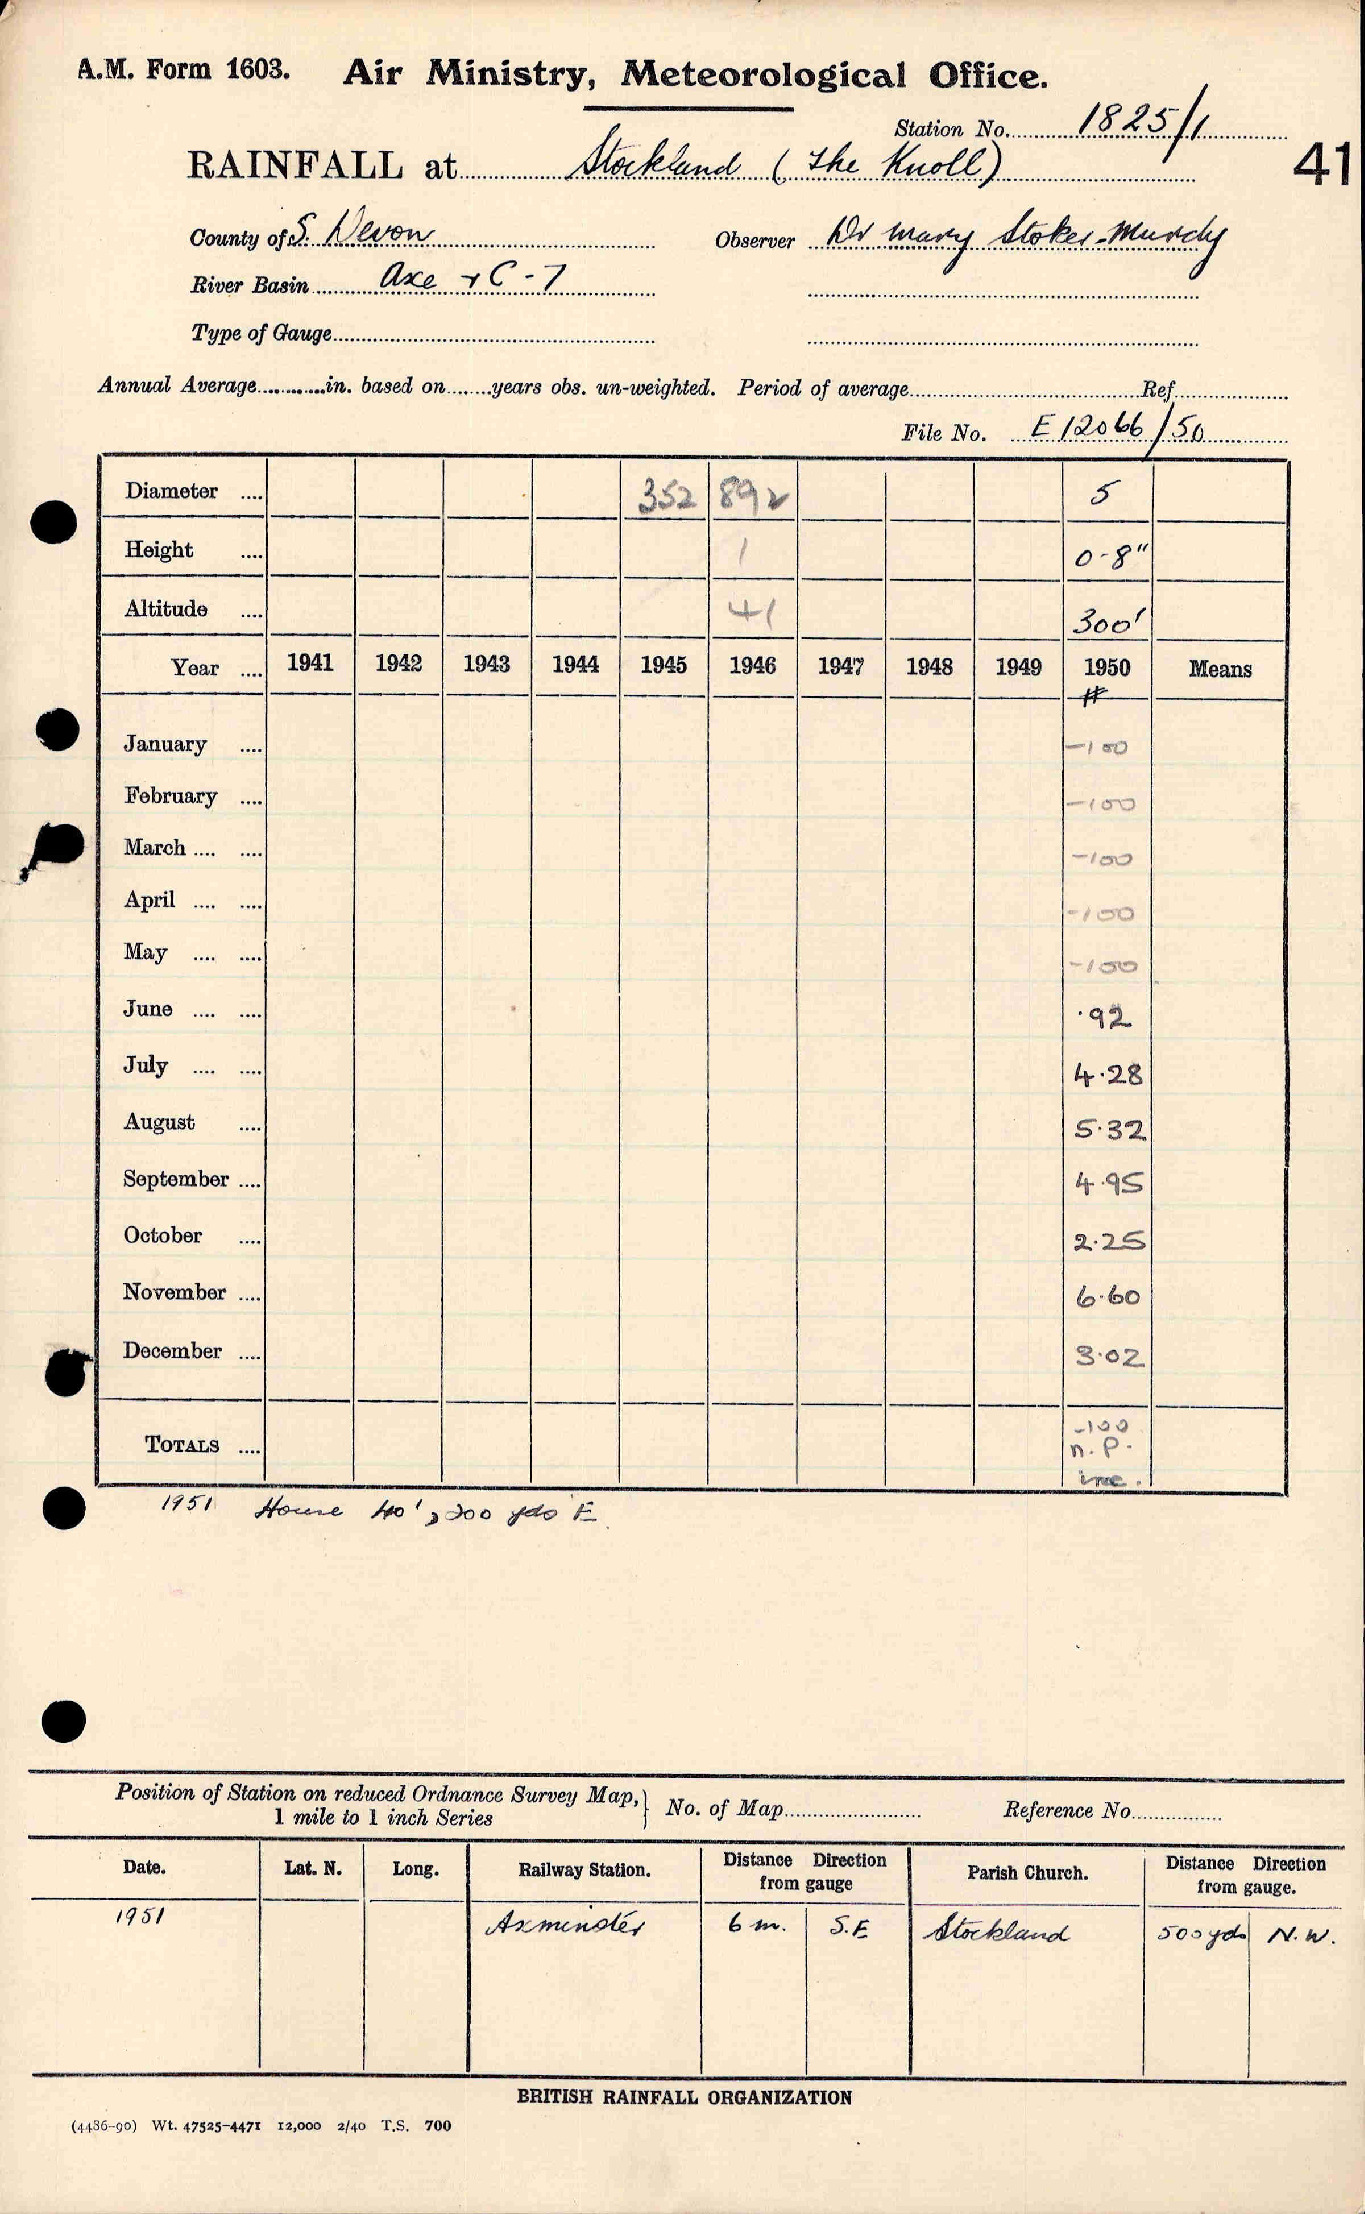 A.M. Form 1603. Air Ministry, Meteorological Office.
Station No. 1825/1
41
RAINFALL at Stockland (The Knoll)
County of S. Devon Observer Dr Mary Stokes-Mundy
River Basin Axe + C-7
Type of Gauge
Annual Average in. based on years obs. un-weighted. Period of average Ref
File No. E 12066/50
Diameter 352 892 5
Height 1 0-8"
Altitude 41 300'
Year 1941 1942 1943 1944 1945 1946 1947 1948 1949 1950 Means
#
January -100
February -100
March -100
April -100
May -100
June ·92
July 4·28
August 5·32
September 4·95
October 2·25
November 6·60
December 3·02
TOTALS -100
n.P.
inc.
1951 House 40', 200 yds E.
Position of Station on reduced Ordnance Survey Map, No. of Map Reference No.
1 mile to 1 inch Series
Date. Lat. N. Long. Railway Station. Distance Direction from gauge Parish Church. Distance Direction from gauge.
1951 Axminster 6 m. S.E Stockland 500 yds N.W.
BRITISH RAINFALL ORGANIZATION
(4486-90) Wt. 47525-4471 12,000 2/40 T.S. 700